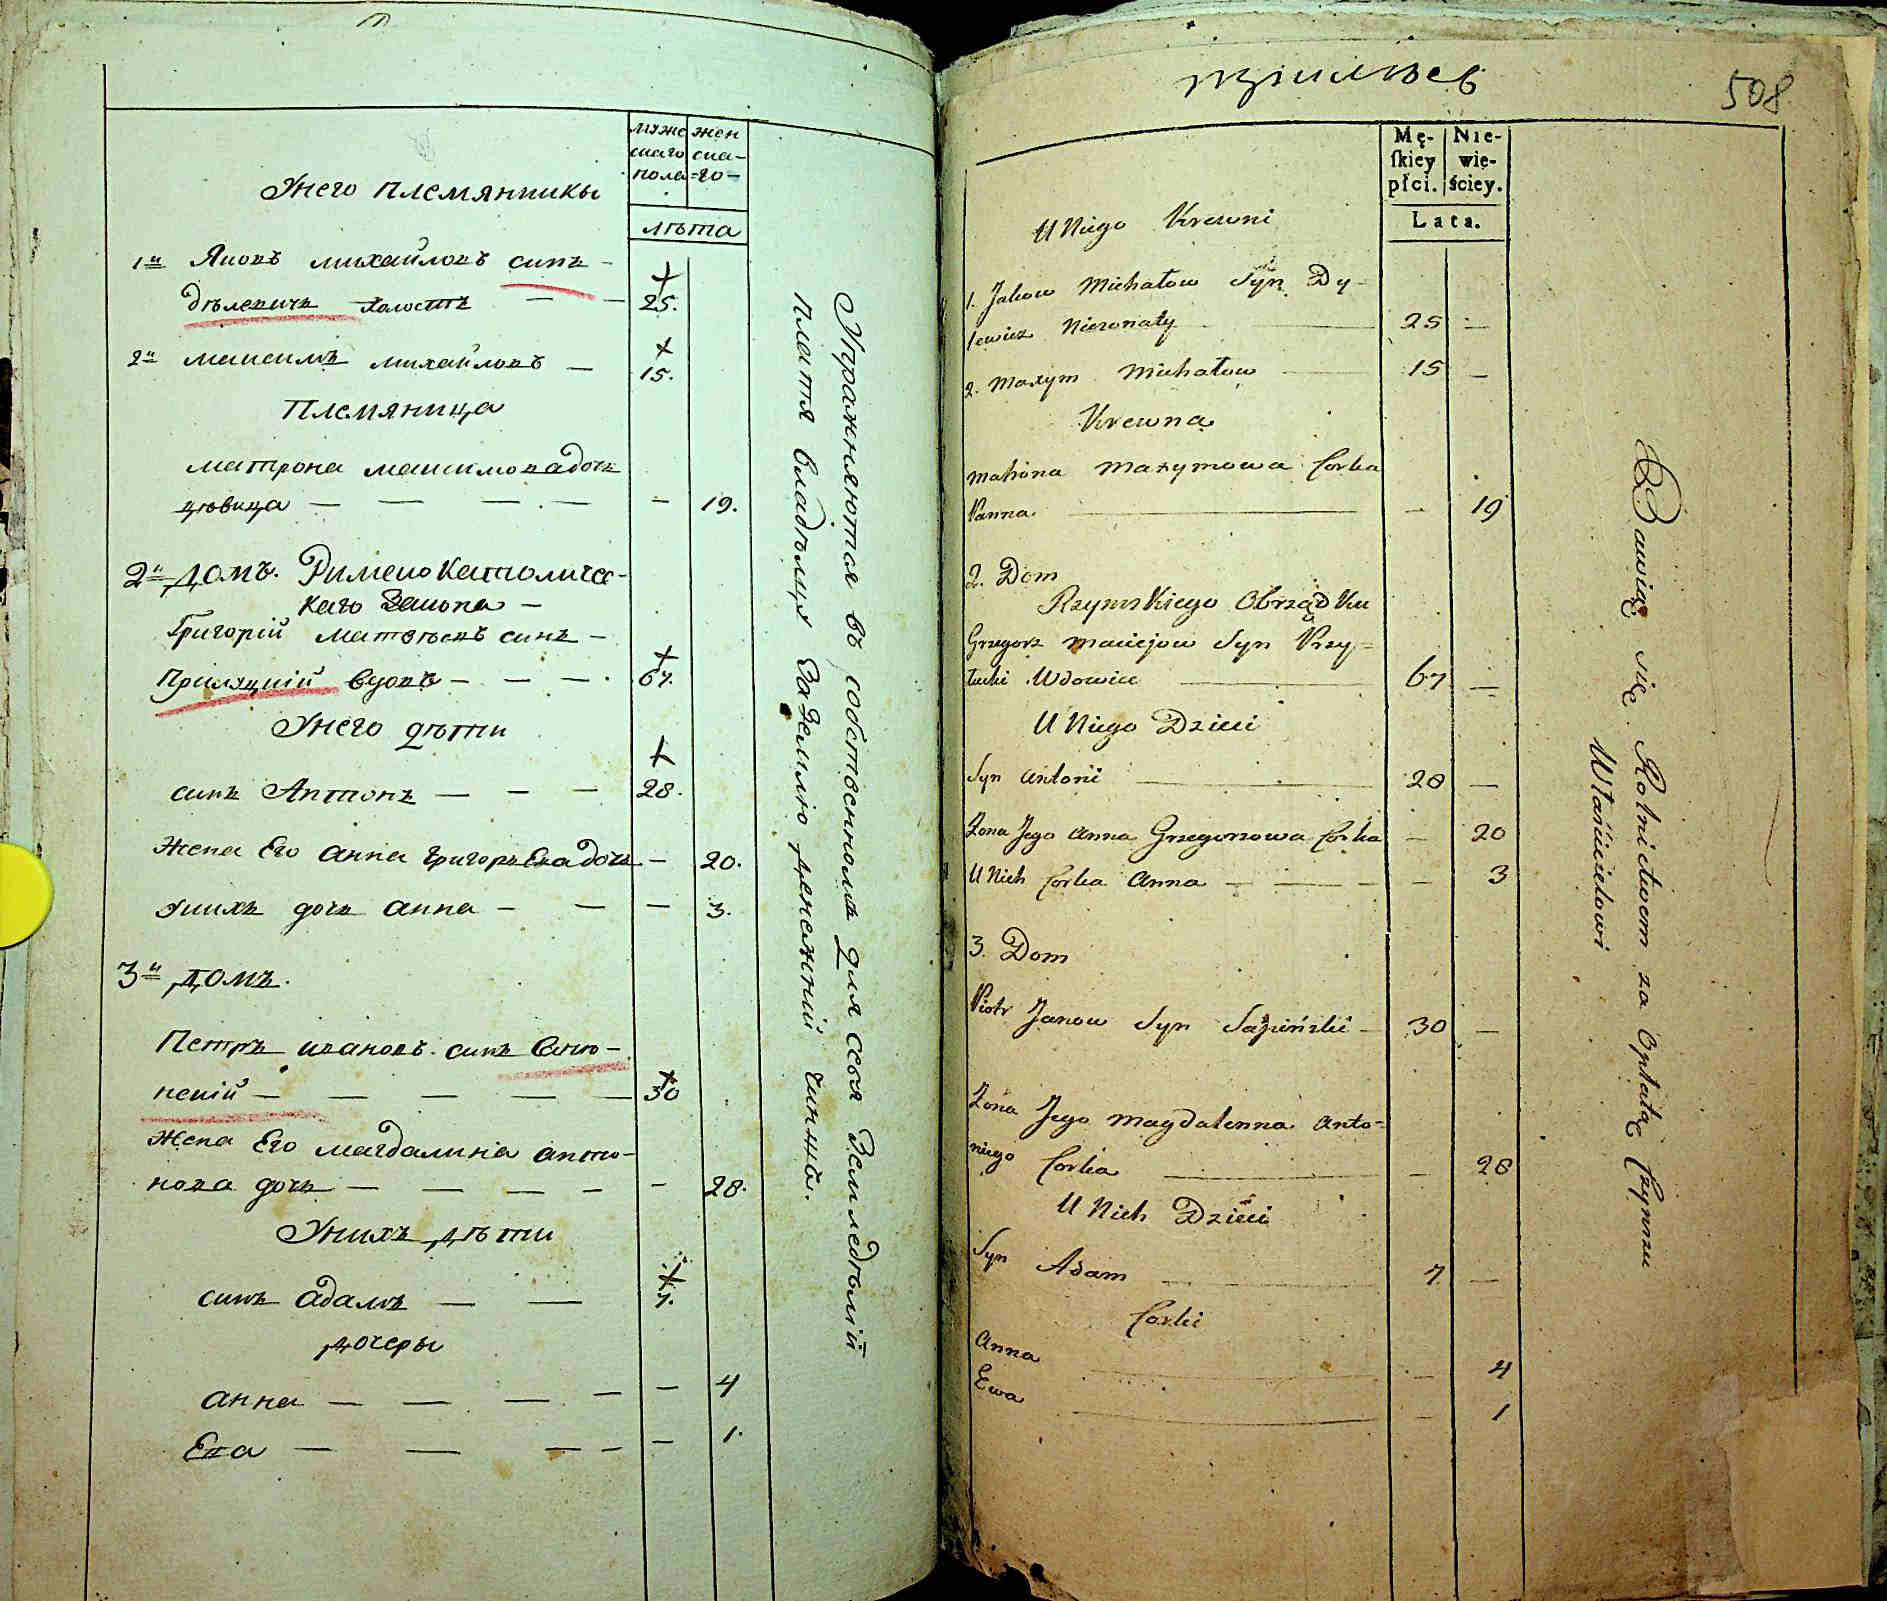 муже
скаго
пола
жен
ска-
го-
лѣта
Унего племянники
1й Яковъ михайловъ синъ -
дѣлевичъ холостъ — — 25.
2й максимъ михайловъ — 15.
Племяница
матрона максимова дочъ
— — — — — 19.
2й домъ. Римско Католичес-
каго Закона —
Григорій матвѣевъ синъ -
вдовъ — — — 67.
Унего дѣти
синъ Антонъ — — — 28.
Жена Его анна Григорьева дочъ — 20.
Унихъ дочъ анна — — — 3.
3й домъ.
Петръ ивановъ синъ
30
Жена Его магдалина анто-
нова дочъ — — — — — 28.
Унихъ дѣти
синъ адамъ — — 7.
дочеры
анна — — — — — 4
Ева — — — — — 1.
Упражняются въ собственномъ для себя Земледѣліи
платя владѣльцу За Землю денежній чиншъ.
508
Mę-
ſkiey
płci.
Nie-
wie-
ściey.
Lata.
U Niego Krewni
1. Jakow Michałow Syn Dy-
lewicz Nieżonaty 25 —
2. Maxym Michałow 15 —
Krewna
Matrona Maxymowa Corka
Panna — 19
2. Dom
Rzymskiego Obrządku
Grzegorz Maciejow Syn Przy=
łucki Wdowiec 67 —
U Niego Dzieci
Syn Antoni 28 —
Żona Jego Anna Grzegorzowa Corka — 20
U Nich Corka Anna — — — — 3
3. Dom
Piotr Janow Syn 30 —
Żona Jego Magdalenna Anto=
niego Corka — 28
U Nich Dzieci
Syn Adam 7 —
Corki
Anna — 4
Ewa — 1
Bawią się Rolnictwem za Opłatą Czynszu
Właścicielowi